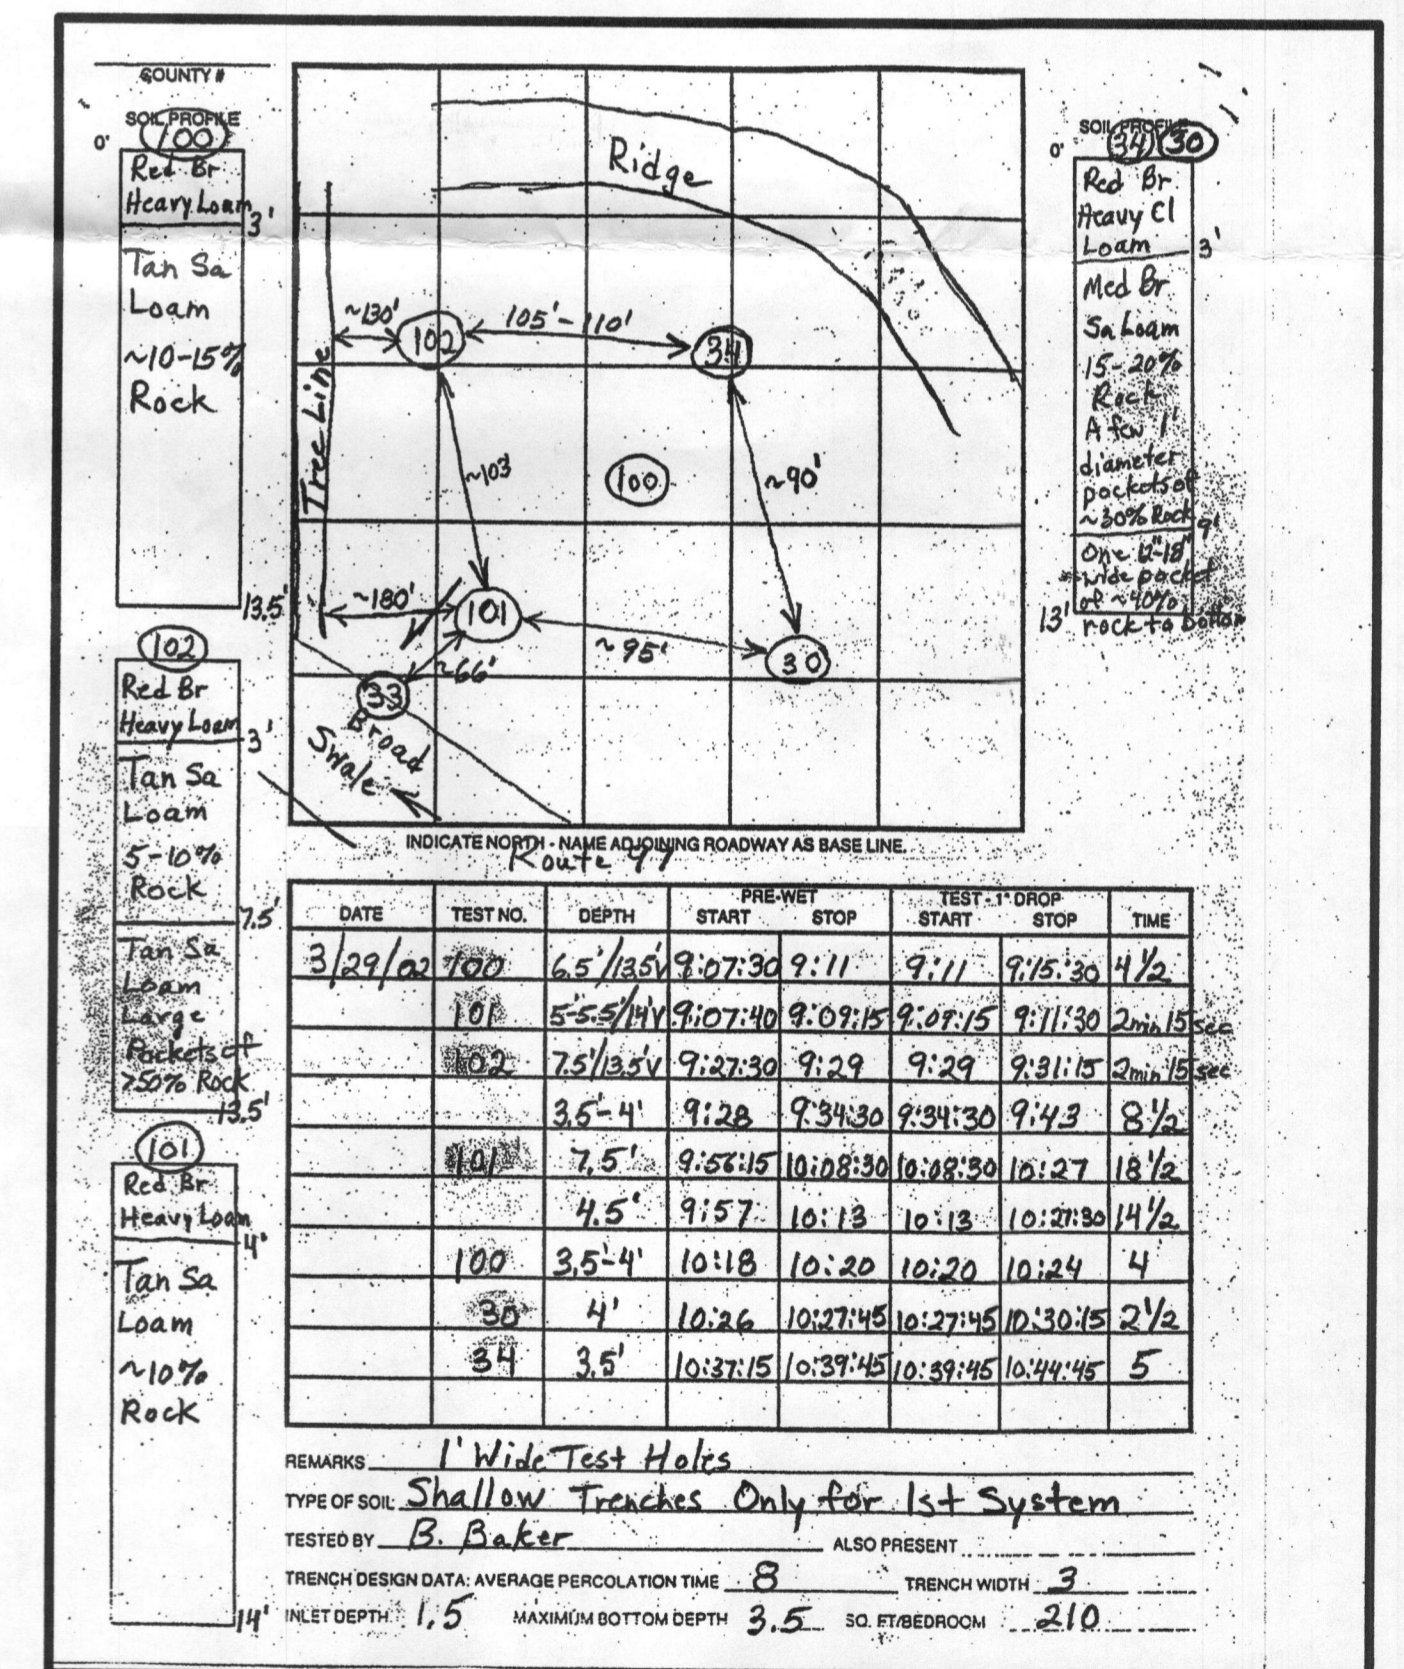 COUNTY #
SOIL PROFILE
100
0'
Red Br
Heavy Loam
3'
Tan Sa
Loam
~10-15%
Rock
13.5'
102
Red Br
Heavy Loam
3'
Tan Sa
Loam
5-10%
Rock
7.5'
Tan Sa
Loam
Large
Pockets of
>50% Rock
13.5'
101
Red Br
Heavy Loam
4'
Tan Sa
Loam
~10%
Rock
14'
Ridge
~130'
102
105'-110'
34
Tree Line
~103'
100
~90'
~180'
101
~95'
30
~66'
33
Broad
Swale
SOIL PROFILE
34 30
0'
Red Br
Heavy Cl
Loam
3'
Med Br
Sa Loam
15-20%
Rock
A few 1'
diameter
pockets of
~30% Rock
9'
One 12"-18"
wide pocket
of ~40%
13'
rock to bottom
INDICATE NORTH - NAME ADJOINING ROADWAY AS BASE LINE.
Route 97
PRE-WET TEST - 1" DROP
DATE TEST NO. DEPTH START STOP START STOP TIME
3/29/02 100 6.5'/13.5'V 9:07:30 9:11 9:11 9:15:30 4 1/2
101 5'-5.5'/14'V 9:07:40 9:09:15 9:09:15 9:11:30 2min 15 sec
102 7.5'/13.5'V 9:27:30 9:29 9:29 9:31:15 2min 15 sec
3.5'-4' 9:28 9:34:30 9:34:30 9:43 8 1/2
101 7.5' 9:56:15 10:08:30 10:08:30 10:27 18 1/2
4.5' 9:57 10:13 10:13 10:27:30 14 1/2
100 3.5'-4' 10:18 10:20 10:20 10:24 4
30 4' 10:26 10:27:45 10:27:45 10:30:15 2 1/2
34 3.5' 10:37:15 10:39:45 10:39:45 10:44:45 5
REMARKS 1' Wide Test Holes
TYPE OF SOIL Shallow Trenches Only for 1st System
TESTED BY B. Baker ALSO PRESENT
TRENCH DESIGN DATA: AVERAGE PERCOLATION TIME 8 TRENCH WIDTH 3
INLET DEPTH 1.5 MAXIMUM BOTTOM DEPTH 3.5 SQ. FT/BEDROOM 210